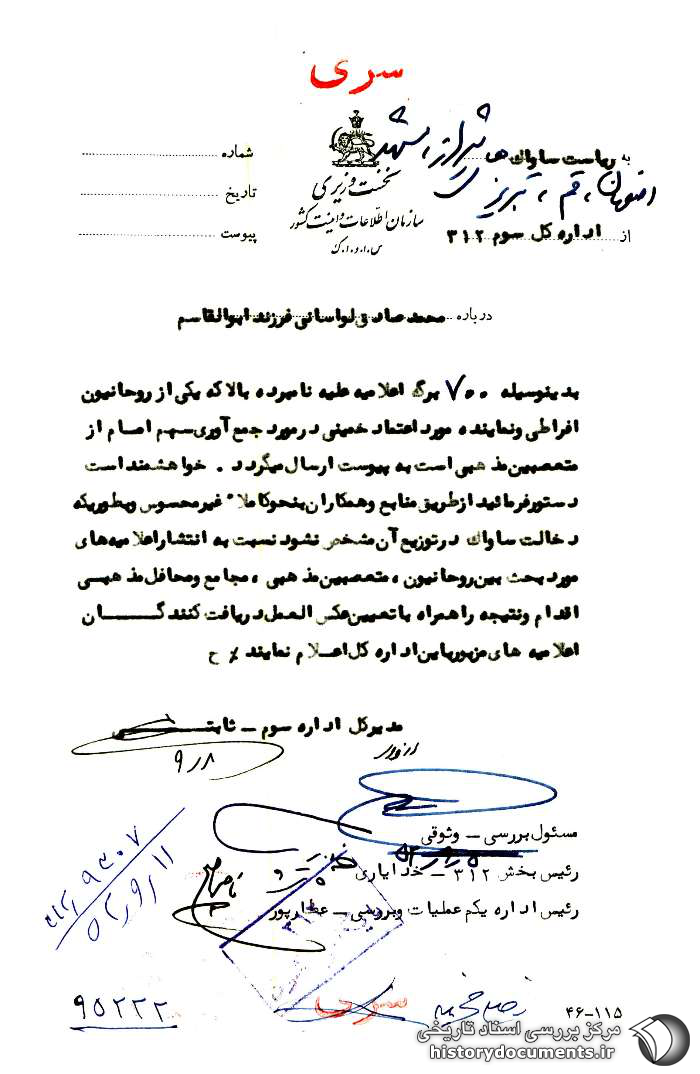 سری
به ریاست ساواک های شیراز، مشهد
اصفهان، قم، تبریز
از اداره کل سوم ۳۱۲
نخست وزیری
سازمان اطلاعات و امنیت کشور
س.ا.و.ا.ک
شماره
تاریخ
پیوست
درباره محمد صادق لواسانی فرزند ابوالقاسم
بدینوسیله ۷۰۰ برگ اعلامیه علیه نامبرده بالا که یکی از روحانیون
افراطی و نماینده مورد اعتماد خمینی در مورد جمع آوری سهم امام از
متعصبین مذهبی است به پیوست ارسال میگردد. خواهشمند است
دستور فرمائید از طریق منابع و همکاران بنحو کاملا" غیر محسوس و بطوریکه
دخالت ساواک در توزیع آن مشخص نشود نسبت به انتشار اعلامیه های
مورد بحث بین روحانیون، متعصبین مذهبی، مجامع و محافل مذهبی
اقدام و نتیجه را همراه با تعیین عکس العمل دریافت کنندگان
اعلامیه های مزبور باین اداره کل اعلام نمایند٪ ح
مدیر کل اداره سوم ـ ثابتی
از وی
۹٫۸
مسئول بررسی ـ وثوقی
رئیس بخش ۳۱۲ ـ خدایاری
رئیس اداره یکم عملیات و بررسی ـ عطارپور
۳۱۲
۹۵۲۲۲
سری
۴۶-۱۱۵
مرکز بررسی اسناد تاریخی
historydocuments.ir